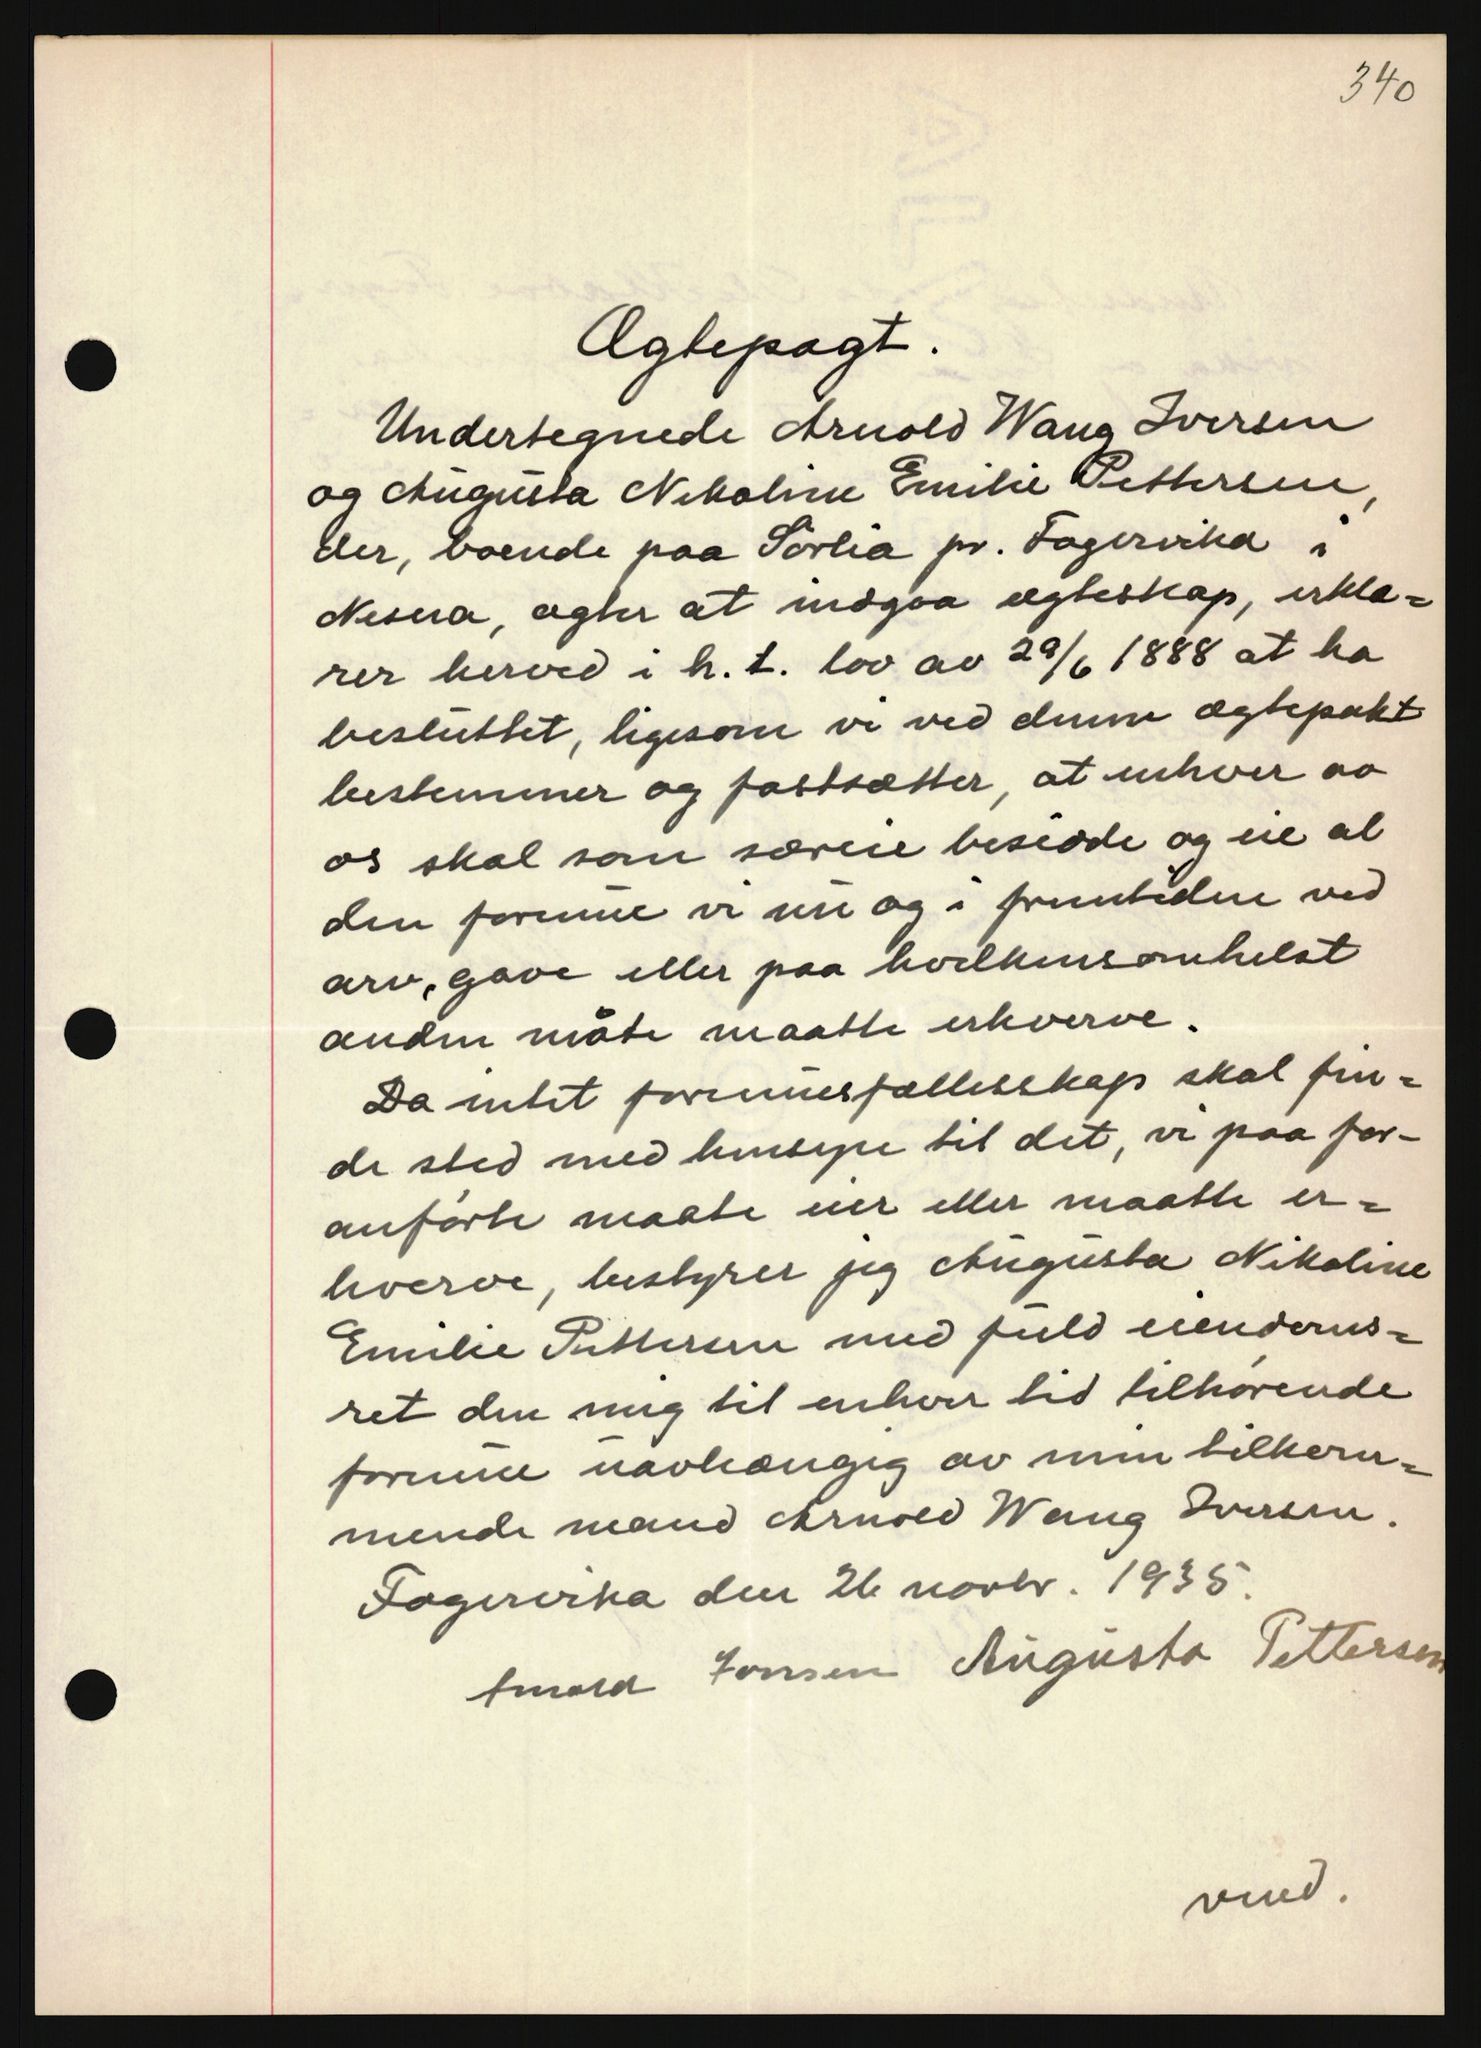 340
Ægtepagt.
Undertegnede Arnold Wang Iversen
og Augusta Nikoline Emilie Pettersen,
der, boende paa Sørlia pr. Fagervika i
Nesna, agter at indgaa ægteskap, erklæ=
rer herved i h. t. lov av 29/6 1888 at ha
besluttet, ligesom vi ved denne ægtepakt
bestemmer og fastsætter, at enhver av
os skal som særeie besidde og eie al
den formue vi nu og i fremtiden ved
arv, gave eller paa hvilkensomhelst
anden måte maatte erhverve.
Da intet formuesfællesskap skal fin=
de sted med hensyn til det, vi paa for-
anførte maate eier eller maatte er=
hverve, bestyrer jeg Augusta Nikoline
Emilie Pettersen med fuld eiendoms=
ret den mig til enhver tid tilhørende
formue uavhængig av min tilkom=
mende mand Arnold Wang Iversen.
Fagervika den 26 novbr. 1935.
Arnold Iversen Augusta Pettersen
vend.